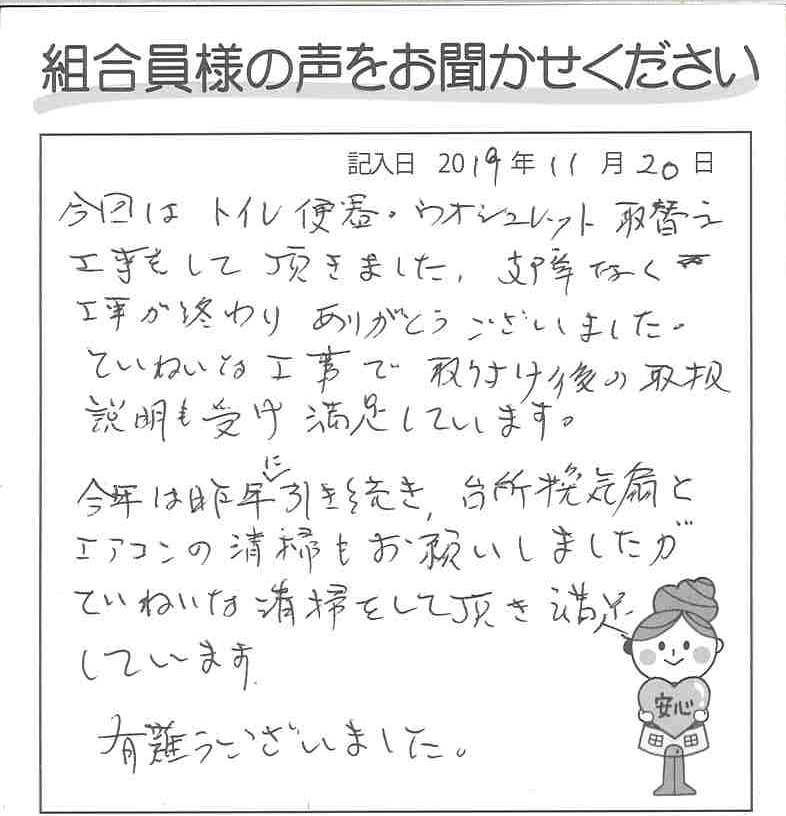 組合員様の声をお聞かせください
記入日 2019年11月20日
今回は トイレ便器・ウオシュレット 取替え
工事をして頂きました。支障なく
工事が終わり ありがとうございました。
ていねいな工事で 取り付け後の取扱
説明も受け 満足しています。
今年は昨年に引き続き、台所換気扇と
エアコンの清掃もお願いしましたが
ていねいな清掃をして頂き 満足
しています。
有難うございました。
安心